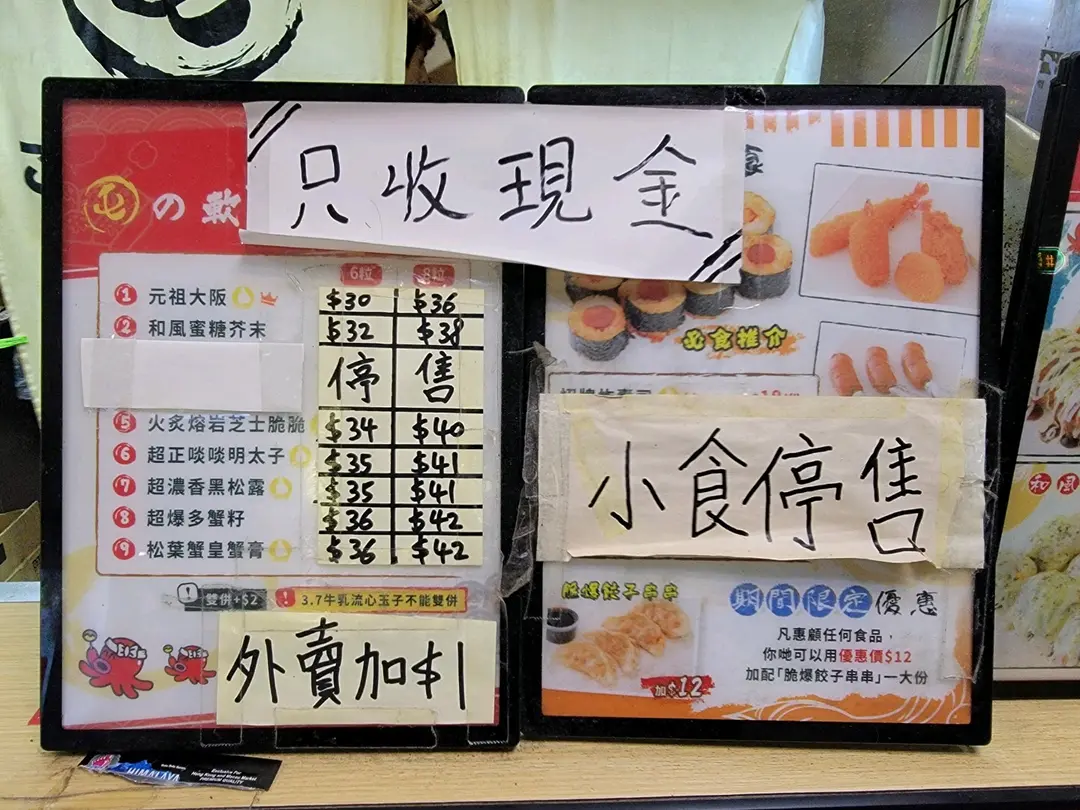 只收現金
の軟
6粒 8粒
1 元祖大阪 $30 $36
2 和風蜜糖芥末 $32 $38
停售
5 火炙熔岩芝士脆脆 $34 $40
6 超正啖啖明太子 $35 $41
7 超濃香黑松露 $35 $41
8 超爆多蟹籽 $36 $42
9 松葉蟹皇蟹膏 $36 $42
! 雙併+$2
! 3.7牛乳流心玉子不能雙併
外賣加$1
必食推介
小食停售
脆爆餃子串串
加$12
期間限定優惠
凡惠顧任何食品，
你哋可以用優惠價$12
加配「脆爆餃子串串」一大份
和風
HIMALAYA
Exclusive For
Hong Kong and Macau Market
PREMIUM QUALITY